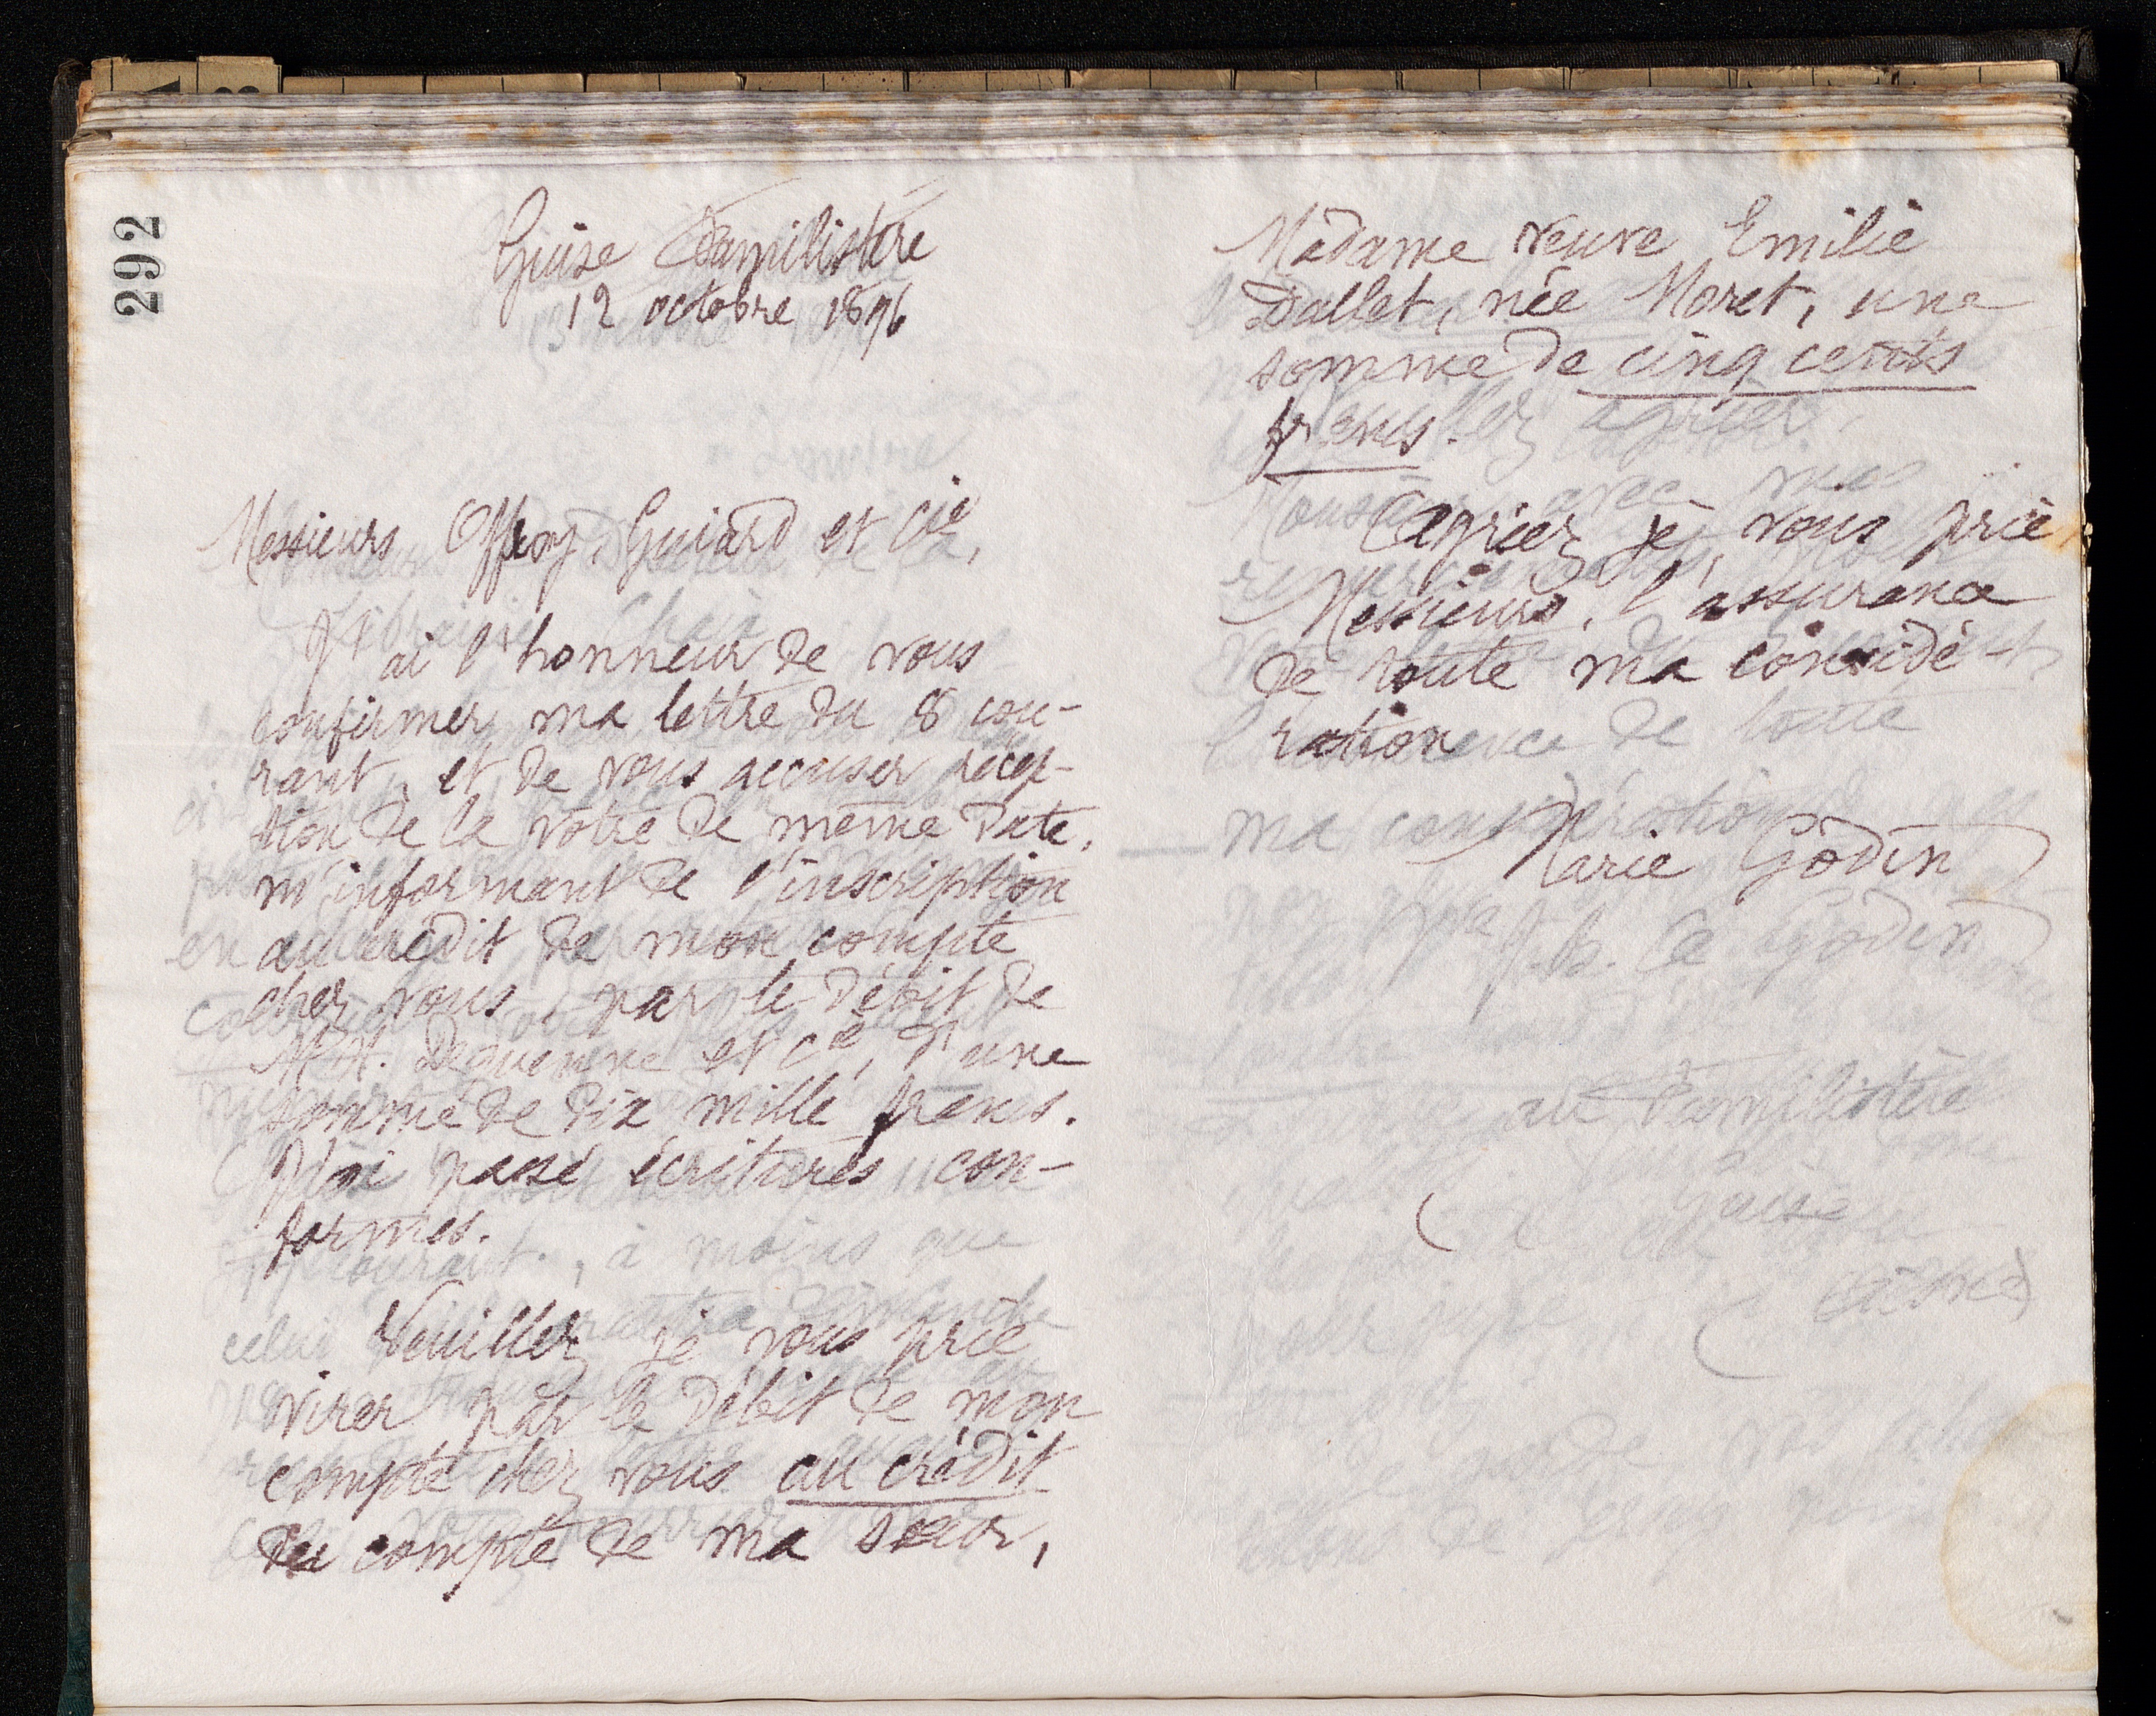 292
Guise Familistère
12 octobre 1896
Messieurs Offroy, Guiard et Cie,
J'ai l'honneur de vous
confirmer ma lettre du 8 cou-
rant, et de vous accuser récep-
tion de la vôtre de même date,
m'informant de l'inscription
au crédit de mon compte
chez vous, par le débit de
MM. Dequenne et Cie, d'une
somme de dix mille francs.
J'ai passé écritures con-
formes.
Veuillez je vous prie
virer par le débit de mon
compte chez vous au crédit
du compte de ma sœur,
Madame veuve Emilie
Dallet, née Moret, une
somme de cinq cents
francs.
Agréez, je vous prie,
Messieurs, l'assurance
de toute ma considé-
ration
Marie Godin